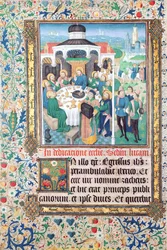 In dedicacione ecclie. Scdm lucam
illo tpr: Egressus ihs
perambulabat iherico. Et
ecce vir nomine zacheus et
hic erat princeps publi
canorum. et ipse diues. Et querebat